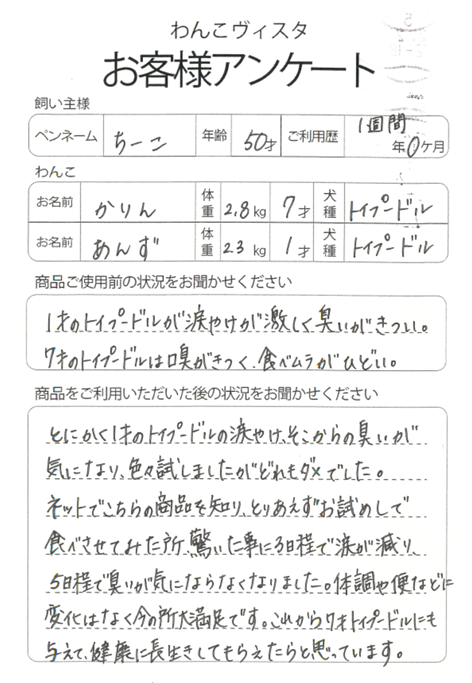 わんこヴィスタ
お客様アンケート
飼い主様
ペンネーム ちーこ 年齢 50才 ご利用歴 1週間 年0ヶ月
わんこ
お名前 かりん 体重 2.8kg 7才 犬種 トイプードル
お名前 あんず 体重 2.3kg 1才 犬種 トイプードル
商品ご使用前の状況をお聞かせください
1才のトイプードルが涙やけが激しく臭いがきつい。
7才のトイプードルは口臭がきつく、食べムラがひどい。
商品をご利用いただいた後の状況をお聞かせください
とにかく1才のトイプードルの涙やけ、そこからの臭いが
気になり、色々試しましたがどれもダメでした。
ネットでこちらの商品を知り、とりあえずお試めしで
食べさせてみた所、驚いた事に3日程で涙が減り、
5日程で臭いが気にならなくなりました。体調や便などに
変化はなく今の所大満足です。これから7才トイプードルにも
与えて、健康に長生きしてもらえたらと思っています。